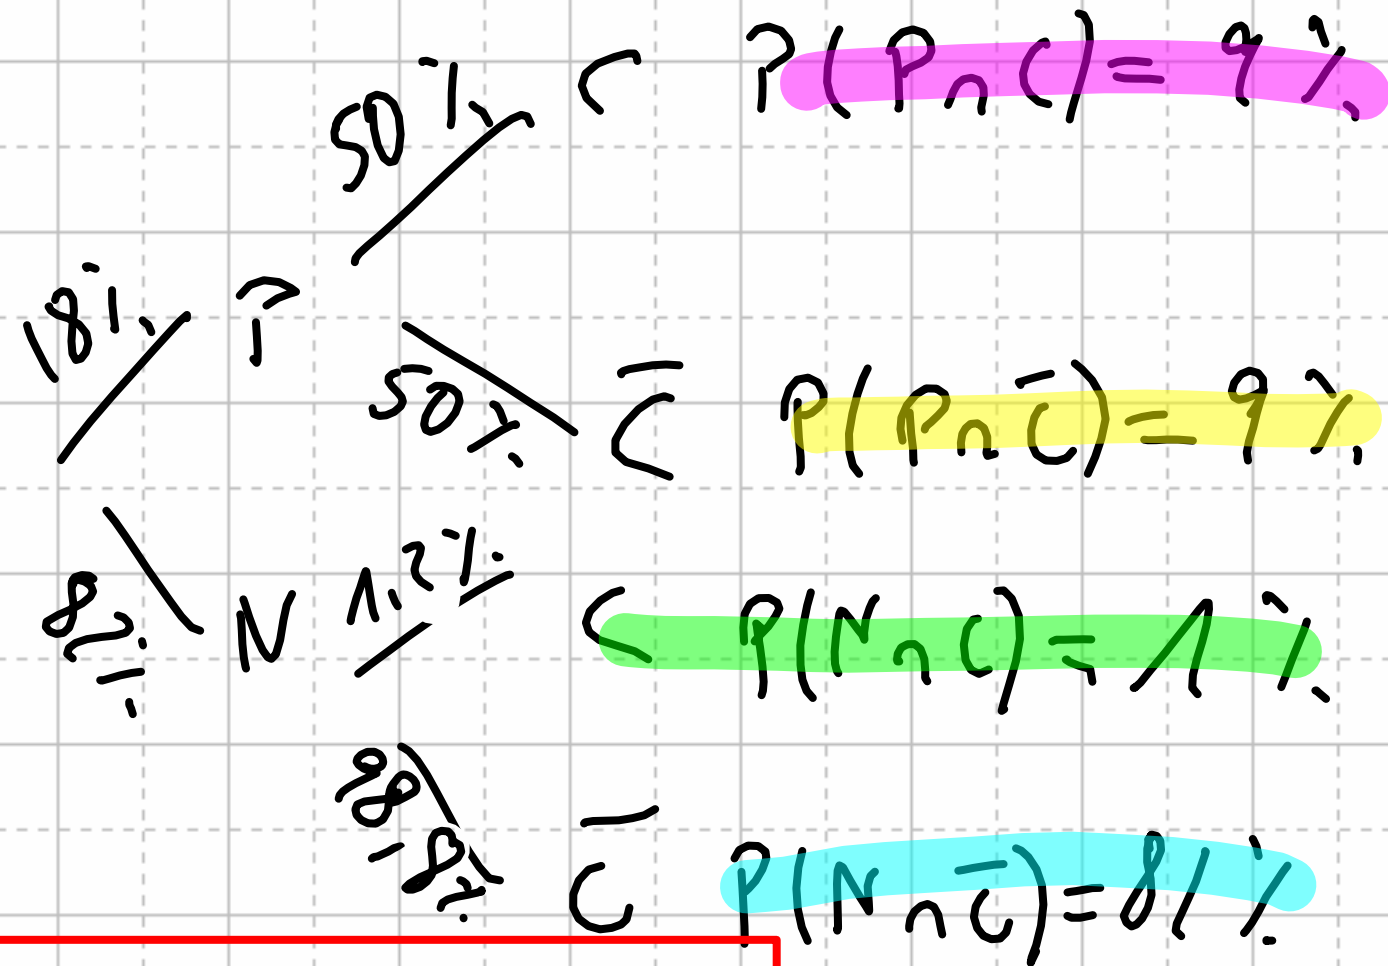 50% C P(P∩C)=9%
18% P
50% C̅ P(P∩C̅)=9%
82% N 1,2% C P(N∩C)=1%
98,8% C̅ P(N∩C̅)=81%